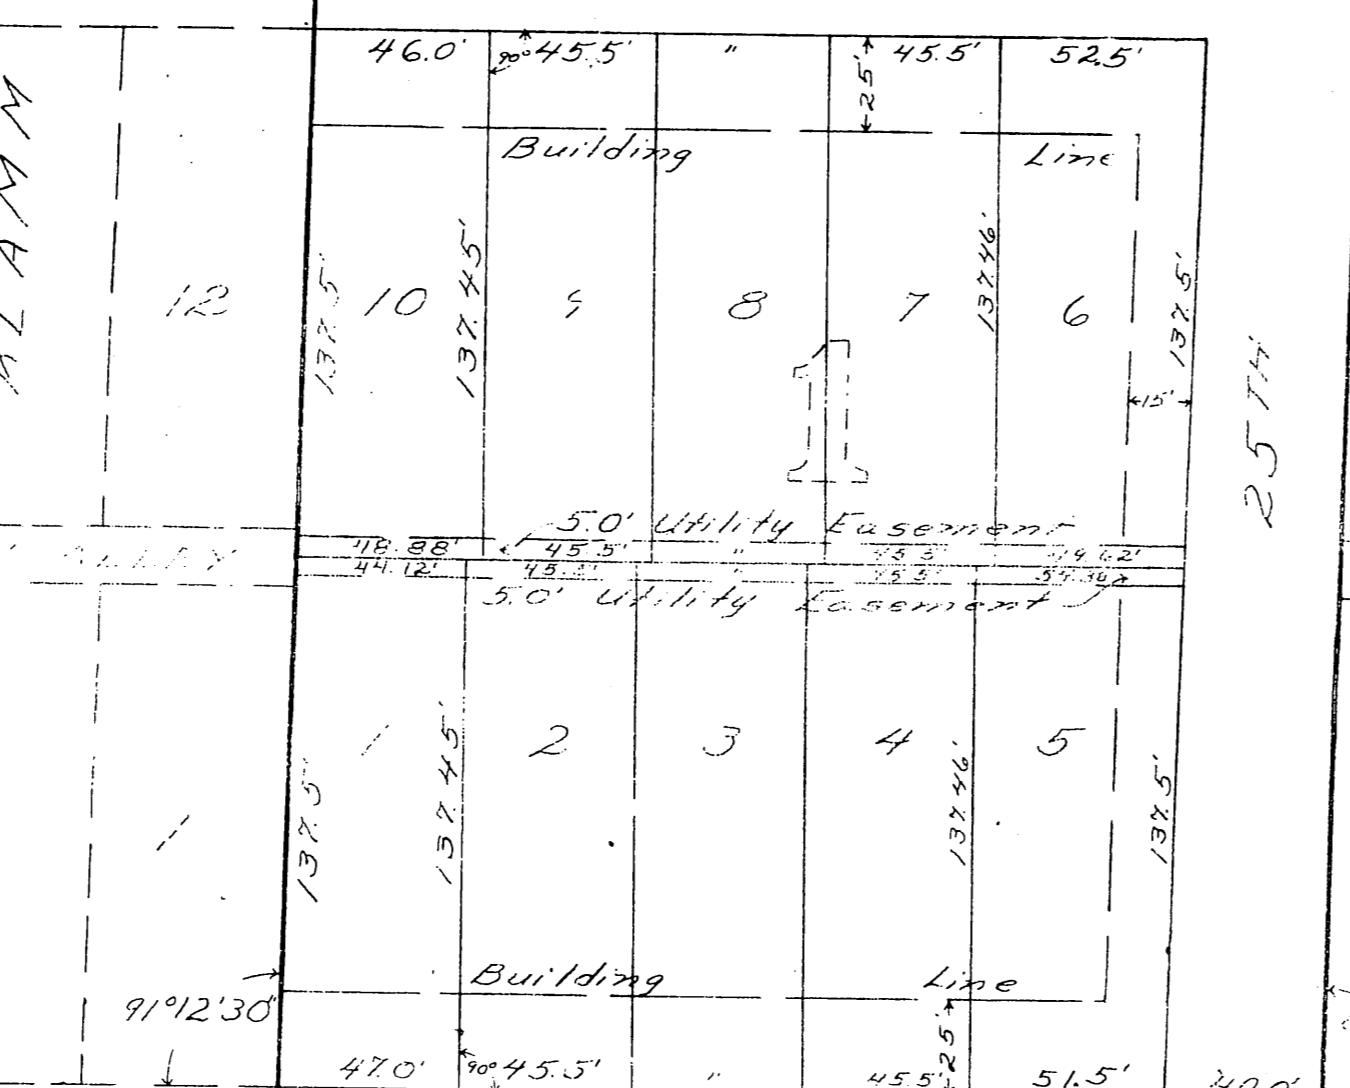 46.0' 90° 45.5' " 45.5' 52.5'
25'
Building Line
KLAMM
12 10 9 8 7 6
137.5' 137.45' 137.46' 137.5'
1
15'
25TH
5.0' Utility Easement
48.88' 45.5' " 45.5' 49.62'
ALLEY
44.12' 45.5' " 45.5'
5.0' Utility Easement
1 2 3 4 5
137.5' 137.45' 137.46' 137.5'
1
Building Line
91°12'30"
25'
47.0' 90° 45.5' " 45.5' 51.5'